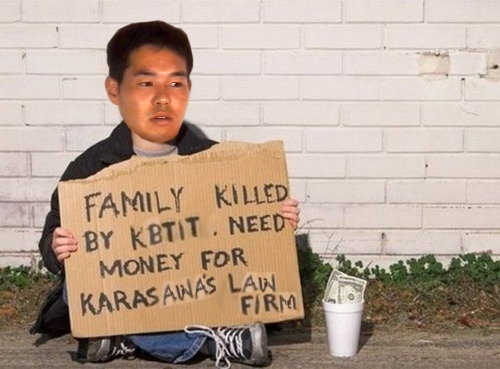 FAMILY KILLED
BY KBTIT. NEED
MONEY FOR
KARASAWA'S LAW
FIRM